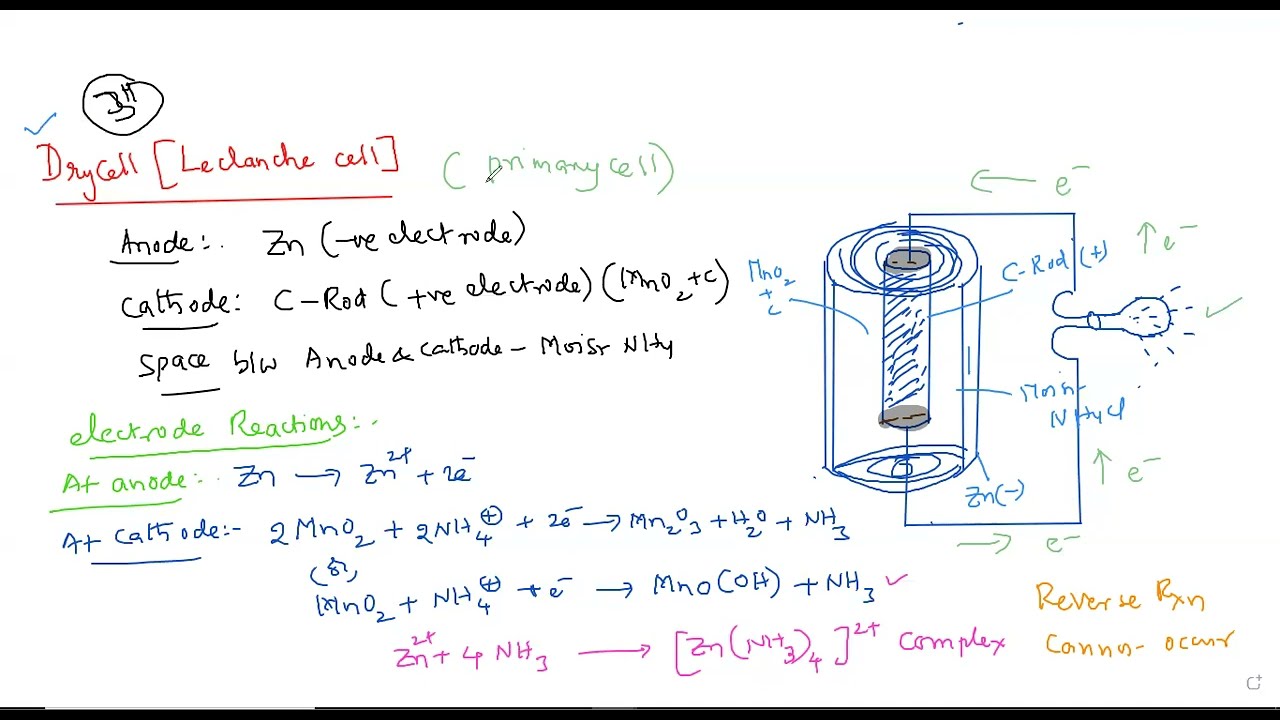 Drycell [Leclanche cell] (primary cell)
Anode:- Zn (-ve electrode)
Cathode: C-Rod (+ve electrode) (MnO₂+C)
Space b/w Anode & Cathode - Moist NH₄
Electrode Reactions:-
At anode:- Zn → Zn²⁺ + 2e⁻
At Cathode:- 2MnO₂ + 2NH₄⊕ + 2e⁻ → Mn₂O₃ + H₂O + NH₃
(or)
MnO₂ + NH₄⊕ + e⁻ → MnO(OH) + NH₃
Zn²⁺ + 4NH₃ → [Zn(NH₃)₄]²⁺ complex
Reverse Rxn
Cannot occur
← e⁻
↑ e⁻
MnO₂
+
C
C-Rod (+)
Moist
NH₄Cl
Zn(-)
↑ e⁻
→ e⁻